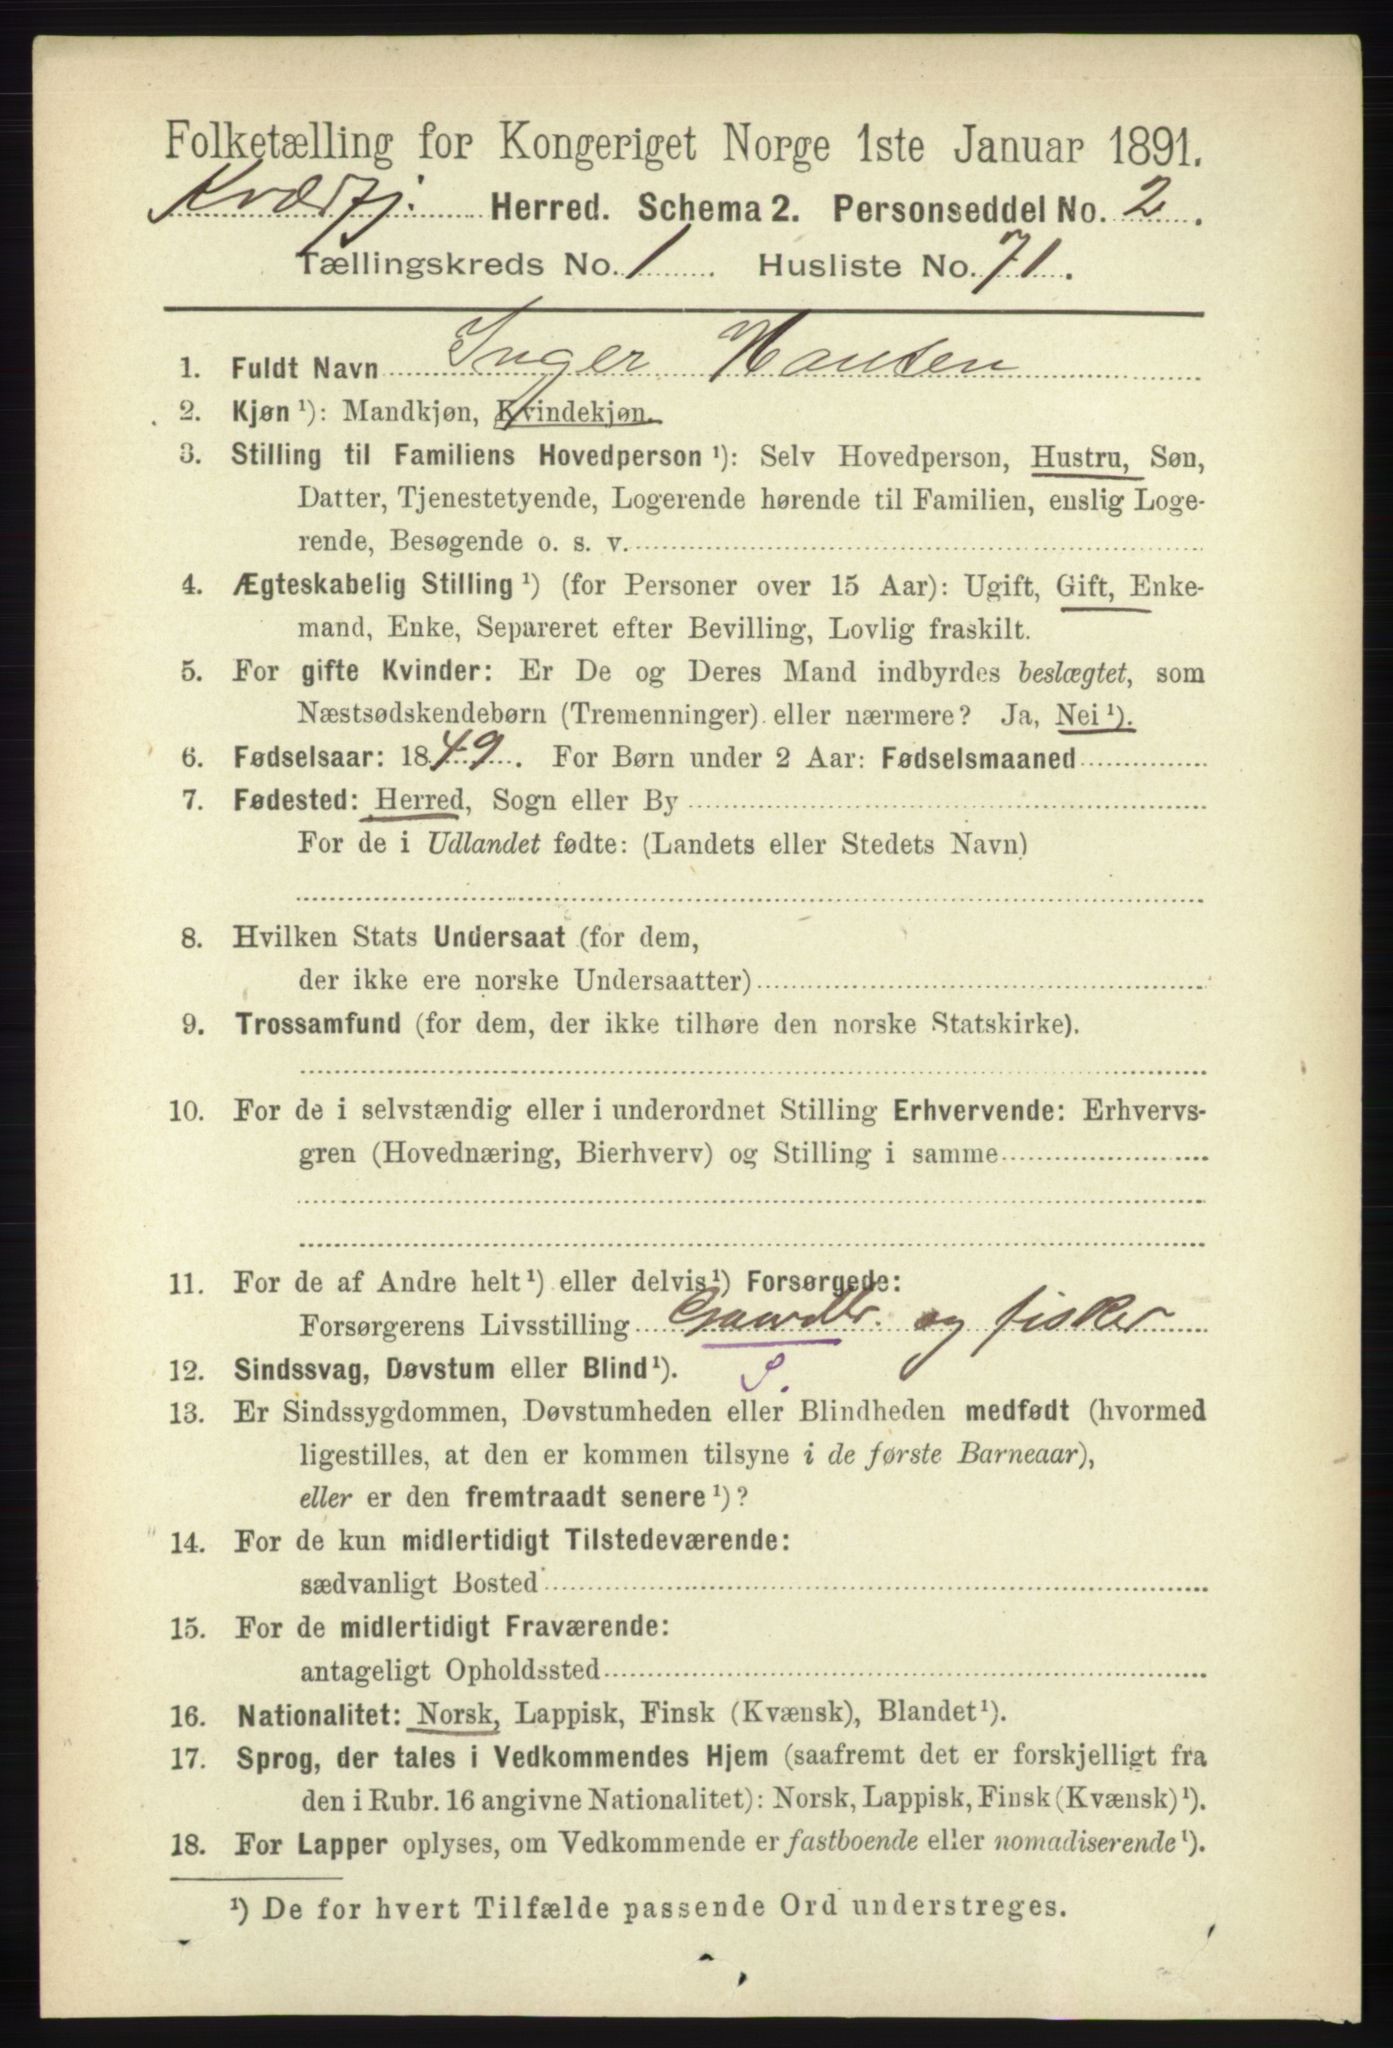 Folketælling for Kongeriget Norge 1ste Januar 1891.
Kvædfj. Herred. Schema 2. Personseddel No. 2.
Tællingskreds No. 1 Husliste No. 71.
1. Fuldt Navn Inger Hansen
2. Kjøn ¹): Mandkjøn, Kvindekjøn.
3. Stilling til Familiens Hovedperson ¹): Selv Hovedperson, Hustru, Søn,
Datter, Tjenestetyende, Logerende hørende til Familien, enslig Loge-
rende, Besøgende o. s. v.
4. Ægteskabelig Stilling ¹) (for Personer over 15 Aar): Ugift, Gift, Enke-
mand, Enke, Separeret efter Bevilling, Lovlig fraskilt.
5. For gifte Kvinder: Er De og Deres Mand indbyrdes beslægtet, som
Næstsødskendebørn (Tremenninger) eller nærmere? Ja, Nei ¹).
6. Fødselsaar: 1849. For Børn under 2 Aar: Fødselsmaaned
7. Fødested: Herred, Sogn eller By
For de i Udlandet fødte: (Landets eller Stedets Navn)
8. Hvilken Stats Undersaat (for dem,
der ikke ere norske Undersaatter)
9. Trossamfund (for dem, der ikke tilhøre den norske Statskirke).
10. For de i selvstændig eller i underordnet Stilling Erhvervende: Erhvervs-
gren (Hovednæring, Bierhverv) og Stilling i samme
11. For de af Andre helt ¹) eller delvis ¹) Forsørgede:
Forsørgerens Livsstilling Gaardbr. og fisker
12. Sindssvag, Døvstum eller Blind ¹). S.
13. Er Sindssygdommen, Døvstumheden eller Blindheden medfødt (hvormed
ligestilles, at den er kommen tilsyne i de første Barneaar),
eller er den fremtraadt senere ¹)?
14. For de kun midlertidigt Tilstedeværende:
sædvanligt Bosted
15. For de midlertidigt Fraværende:
antageligt Opholdssted
16. Nationalitet: Norsk, Lappisk, Finsk (Kvænsk), Blandet ¹).
17. Sprog, der tales i Vedkommendes Hjem (saafremt det er forskjelligt fra
den i Rubr. 16 angivne Nationalitet): Norsk, Lappisk, Finsk (Kvænsk) ¹).
18. For Lapper oplyses, om Vedkommende er fastboende eller nomadiserende ¹).
¹) De for hvert Tilfælde passende Ord understreges.